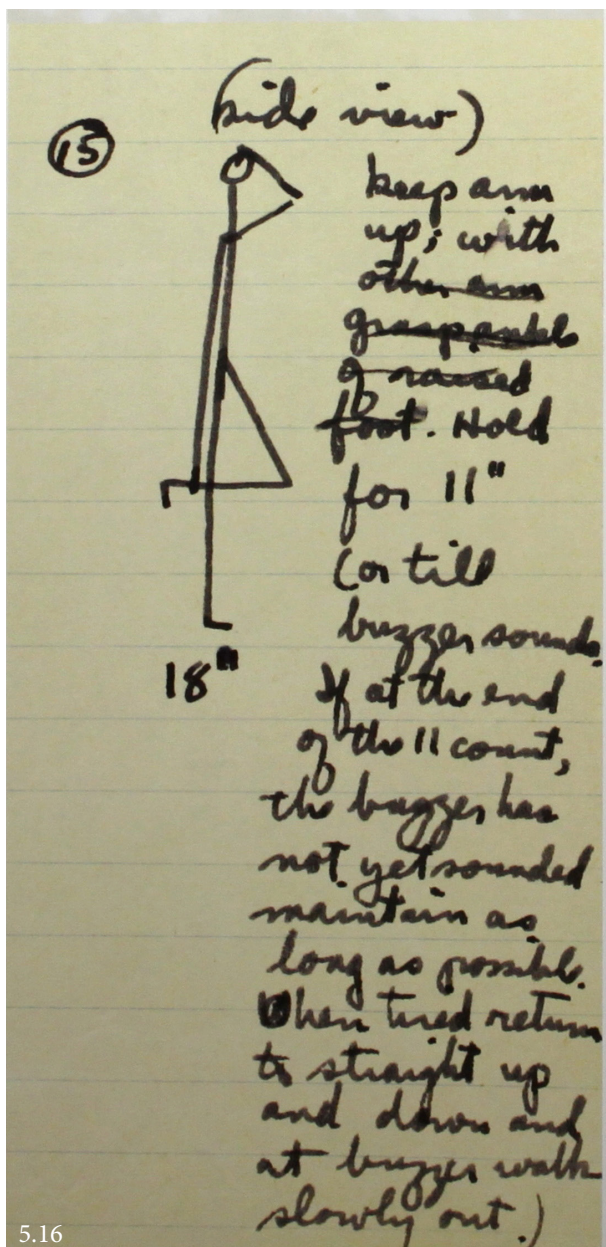 (side view)
15
keep arm
up; with
other arm
grasp ankle
of raised
foot. Hold
for 11"
(or till
buzzer sounds.
18"
If at the end
of the 11 count,
the buzzer has
not yet sounded
maintain as
long as possible.
When tired return
to straight up
and down and
at buzzer walk
slowly out.)
5.16